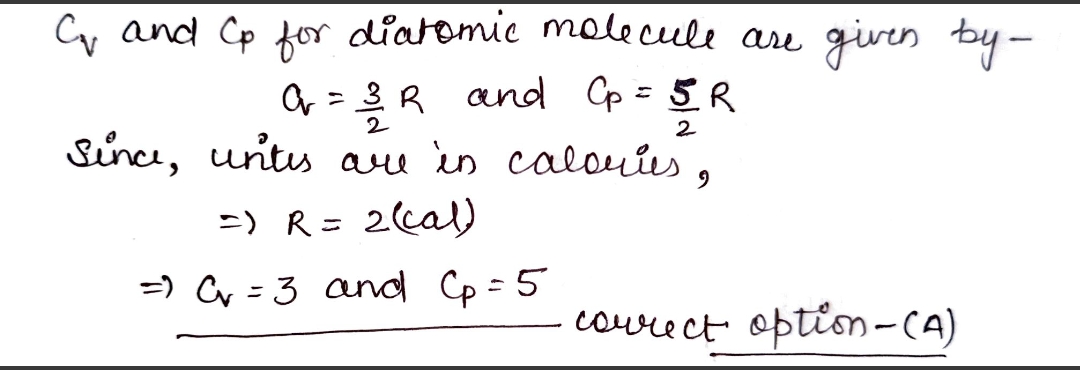 Cv and Cp for diatomic molecule are given by -
Cv = 3/2 R and Cp = 5/2 R
Since, units are in calories,
=> R = 2(cal)
=> Cv = 3 and Cp = 5
correct option - (A)